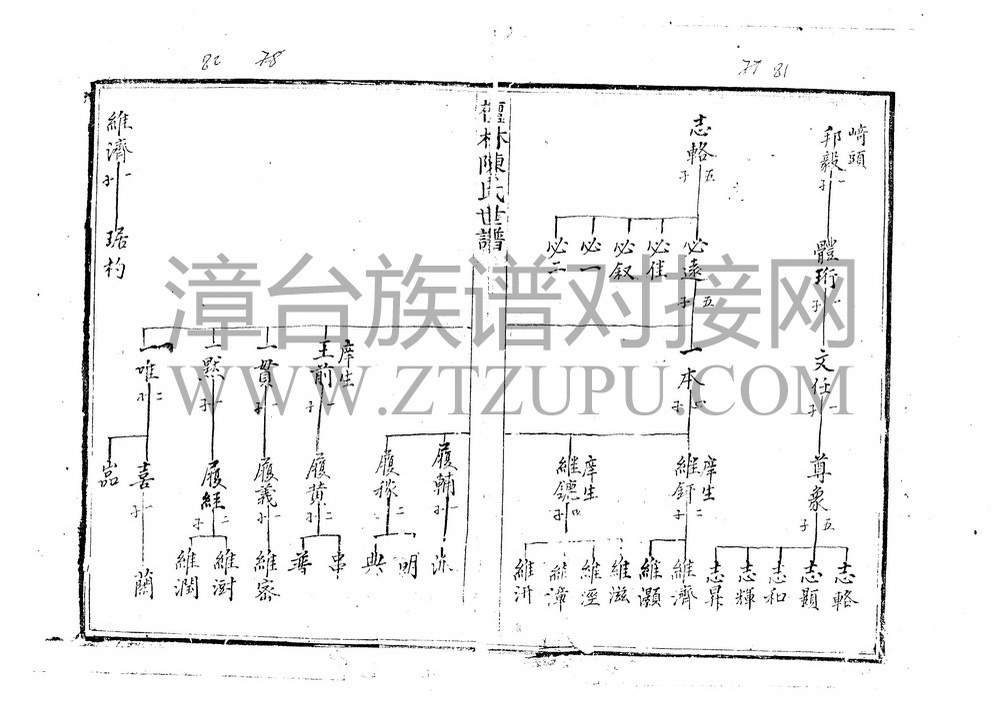 82 78
77 81
崎頭
邦毅 一子
體珩 一子
文任 一子
尊象 五子
志輅
志顯
志和
志輝
志昇
志輅 五子
必遠 五子
必佳
必叙
必一
必二
一本 四子
庠生
維釬 二子
維濟
維灝
庠生
維鏓 四子
維滋
維涇
維漳
維汧
履輔 一子
派
履稼 二子
明
典
庠生
王前 一子
履黄 二子
串
普
一貫 一子
履義 一子
維密
一黙 一子
履經 二子
維澍
維潤
一唯 二子
喜 一子
蘭
嵓
維濟 一子
琚杓
檀林陳氏世譜
漳台族谱对接网
WWW.ZTZUPU.COM